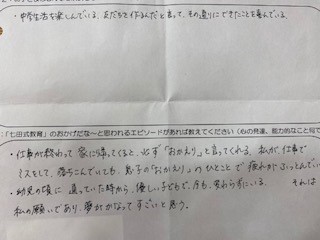 ・中学生活を楽しんでいる。友だちと作るんだと言って、その通りにできたことを喜んでいる。
:「七田式教育」のおかげだな〜と思われるエピソードがあれば教えてください(心の発達、能力的なこと何で
・仕事が終わって家に帰ってくると、必ず「おかえり」と言ってくれる。私が仕事で
ミスをして、落ちこんでいても、息子の「おかえり」のひとことで疲れがふっとんでい
・幼児の頃に通っていた時から、優しい子どもで、今も、変わらずにいる。それは
私の願いであり、夢がかなってすごいと思う。